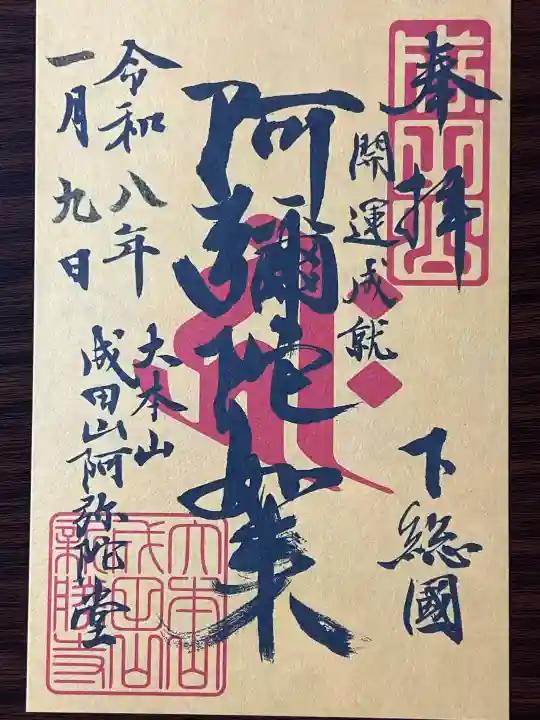 奉拝
開運成就
下総國
阿彌陀如来
大本山
成田山阿弥陀堂
令和八年
一月九日
成田山
大本山
成田山
新勝寺